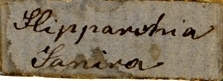 Hipparchia
Janira